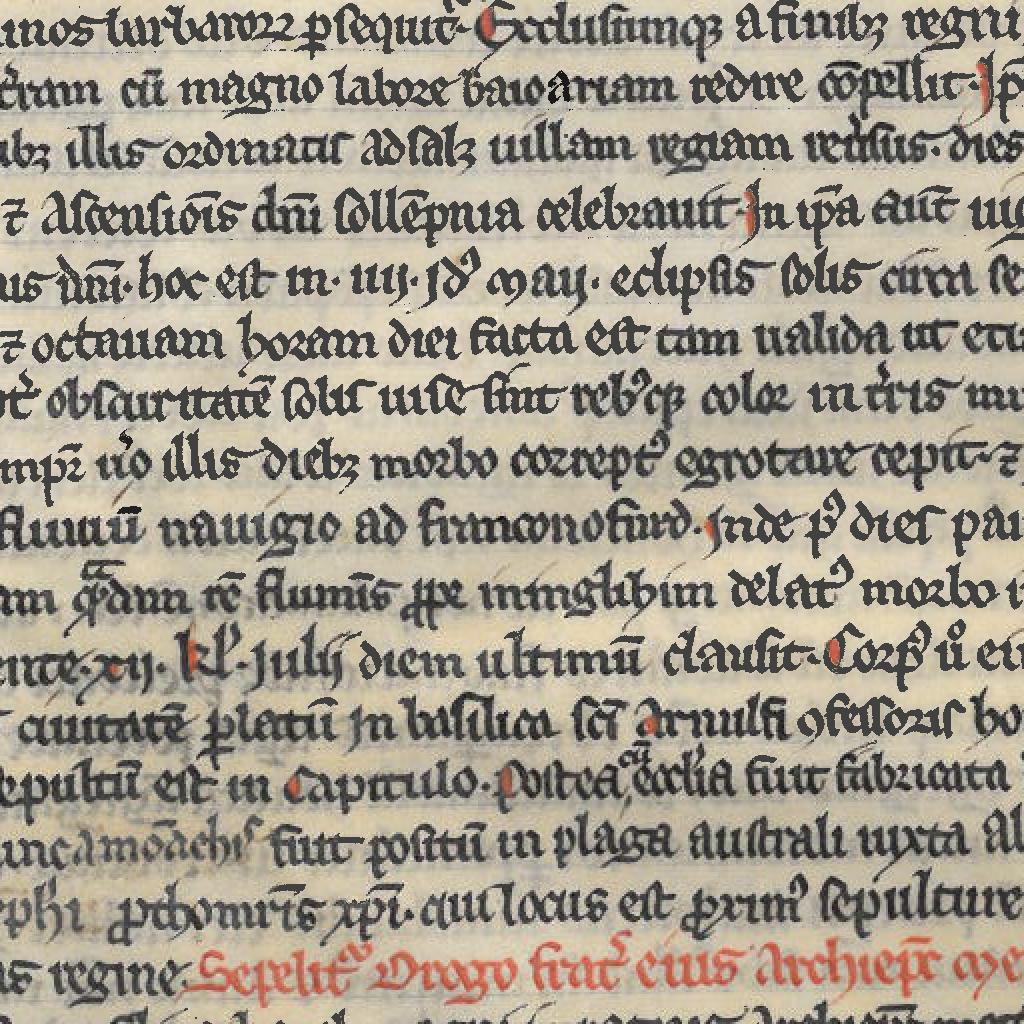 barbarorꝝ ꝑsequitᷣ. Exclusumqꝫ a finibꝫ regni
cū magno labore baioariam redire cōpellit. Ip̄
illis ordinatis ad salꝫ uillam regiam reu̓sus. dies
⁊ Ascensiōis dn̄i sollēpnia celebrauit. In ip̄a aut̄ uig
dn̄i. hoc est in. iiij. Idꝰ maij. eclipsis solis circa se
⁊ octauam horam diei facta est tam ualida ut eti
obscuritatē solis uise sint rebꝰqꝫ color in t̓ris
u̓o illis diebꝫ morbo correptꝰ egrotare cepit. ⁊
fluuiū nauigio ad franconofurd. Inde pꝰ dies pau
qᷓdam rē fluminīs ꝓpe ininglihim delatꝰ morbo
xij. kl̓. Julij diem ultimū clausit. Corpꝰ u̓o ei
ciuitatē ꝑlatū in basilica scī Arnulfi ꝯfessoris ho
sepultū est in Capitulo. Postea cū eccl̓ia fuit fabricata
a monachis fuit positū in plaga australi iuxta al
ꝓthomr̄is xp̄i. cui locus est ꝓximꝰ sepulture
regine. Sepelitᷣ Drogo fratͬ eius Archiep̄c